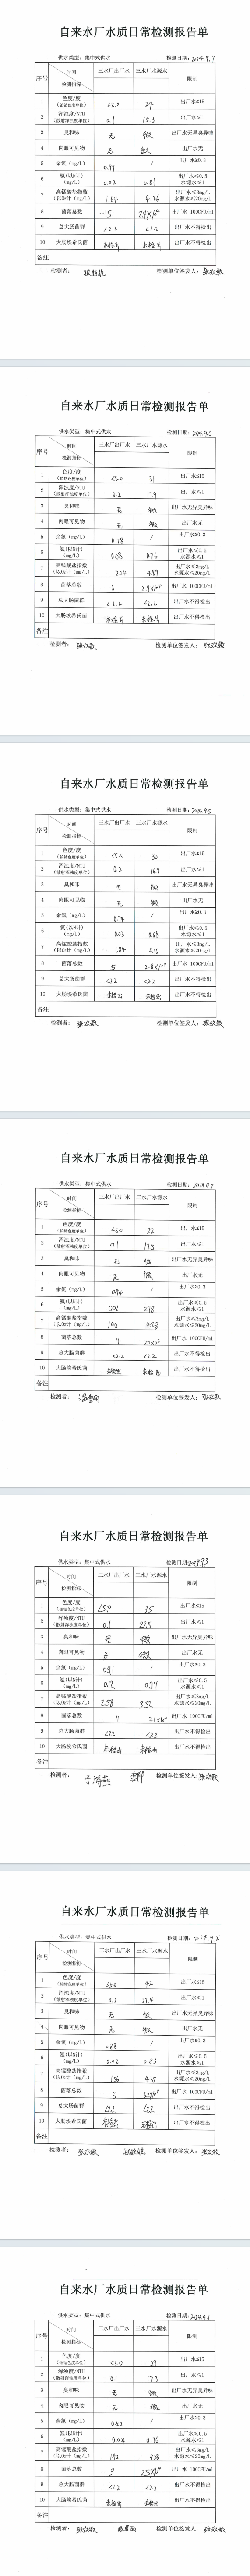 自来水厂水质日常检测报告单
供水类型：集中式供水 检测日期：2024.9.7
序号 时间 检测指标 三水厂出厂水 三水厂水源水 限制
1 色度/度（铂钴色度单位） <5.0 24 出厂水≤15
2 浑浊度/NTU（散射浑浊度单位） 0.1 15.3 出厂水≤1
3 臭和味 无 微 出厂水无异臭异味
4 肉眼可见物 无 微 出厂水无
5 余氯（mg/L） 0.99 / 出厂水≥0.3
6 氨(以N计)（mg/L） 0.02 0.81 出厂水≤0.5 水源水≤1
7 高锰酸盐指数（以O₂计（mg/L） 1.64 4.26 出厂水≤3mg/L 水源水≤20mg/L
8 菌落总数 5 出厂水 100CFU/ml
9 总大肠菌群 <2.2 <2.2 出厂水不得检出
10 大肠埃希氏菌 未检出 未检出 出厂水不得检出
备注
检测者： 检测单位签发人：
自来水厂水质日常检测报告单
供水类型：集中式供水 检测日期：2024.9.6
序号 时间 检测指标 三水厂出厂水 二水厂水源水 限制
1 色度/度（铂钴色度单位） <5.0 31 出厂水≤15
2 浑浊度/NTU（散射浑浊度单位） 0.2 17.9 出厂水≤1
3 臭和味 无 微 出厂水无异臭异味
4 肉眼可见物 无 微 出厂水无
5 余氯（mg/L） 0.78 / 出厂水≥0.3
6 氨(以N计)（mg/L） 0.03 0.76 出厂水≤0.5 水源水≤1
7 高锰酸盐指数（以O₂计（mg/L） 2.24 4.89 出厂水≤3mg/L 水源水≤20mg/L
8 菌落总数 6 出厂水 100CFU/ml
9 总大肠菌群 <2.2 <2.2 出厂水不得检出
10 大肠埃希氏菌 未检出 未检出 出厂水不得检出
备注
检测者： 检测单位签发人：
自来水厂水质日常检测报告单
供水类型：集中式供水 检测日期：2024.9.5
序号 时间 检测指标 三水厂出厂水 三水厂水源水 限制
1 色度/度（铂钴色度单位） <5.0 30 出厂水≤15
2 浑浊度/NTU（散射浑浊度单位） 0.2 16.9 出厂水≤1
3 臭和味 无 微 出厂水无异臭异味
4 肉眼可见物 无 微 出厂水无
5 余氯（mg/L） 0.74 / 出厂水≥0.3
6 氨(以N计)（mg/L） 0.03 0.68 出厂水≤0.5 水源水≤1
7 高锰酸盐指数（以O₂计（mg/L） 1.84 4.16 出厂水≤3mg/L 水源水≤20mg/L
8 菌落总数 5 出厂水 100CFU/ml
9 总大肠菌群 <2.2 <2.2 出厂水不得检出
10 大肠埃希氏菌 未检出 未检出 出厂水不得检出
备注
检测者： 检测单位签发人：
自来水厂水质日常检测报告单
供水类型：集中式供水 检测日期：2024.9.4
序号 时间 检测指标 三水厂出厂水 三水厂水源水 限制
1 色度/度（铂钴色度单位） <5.0 22 出厂水≤15
2 浑浊度/NTU（散射浑浊度单位） 0.1 17.3 出厂水≤1
3 臭和味 无 微 出厂水无异臭异味
4 肉眼可见物 无 微 出厂水无
5 余氯（mg/L） 0.94 / 出厂水≥0.3
6 氨(以N计)（mg/L） 0.02 0.78 出厂水≤0.5 水源水≤1
7 高锰酸盐指数（以O₂计（mg/L） 1.90 4.08 出厂水≤3mg/L 水源水≤20mg/L
8 菌落总数 4 出厂水 100CFU/ml
9 总大肠菌群 <2.2 <2.2 出厂水不得检出
10 大肠埃希氏菌 未检出 未检出 出厂水不得检出
备注
检测者： 检测单位签发人：
自来水厂水质日常检测报告单
供水类型：集中式供水 检测日期：2024.9.3
序号 时间 检测指标 三水厂出厂水 三水厂水源水 限制
1 色度/度（铂钴色度单位） <5.0 35 出厂水≤15
2 浑浊度/NTU（散射浑浊度单位） 0.1 22.5 出厂水≤1
3 臭和味 无 微 出厂水无异臭异味
4 肉眼可见物 无 微 出厂水无
5 余氯（mg/L） 0.91 / 出厂水≥0.3
6 氨(以N计)（mg/L） 0.74 出厂水≤0.5 水源水≤1
7 高锰酸盐指数（以O₂计（mg/L） 2.58 出厂水≤3mg/L 水源水≤20mg/L
8 菌落总数 4 出厂水 100CFU/ml
9 总大肠菌群 <2.2 <2.2 出厂水不得检出
10 大肠埃希氏菌 未检出 未检出 出厂水不得检出
备注
检测者： 检测单位签发人：
自来水厂水质日常检测报告单
供水类型：集中式供水 检测日期：2024.9.2
序号 时间 检测指标 三水厂出厂水 三水厂水源水 限制
1 色度/度（铂钴色度单位） <5.0 42 出厂水≤15
2 浑浊度/NTU（散射浑浊度单位） 0.1 27.4 出厂水≤1
3 臭和味 无 微 出厂水无异臭异味
4 肉眼可见物 无 微 出厂水无
5 余氯（mg/L） 0.88 / 出厂水≥0.3
6 氨(以N计)（mg/L） 0.02 0.83 出厂水≤0.5 水源水≤1
7 高锰酸盐指数（以O₂计（mg/L） 1.56 4.35 出厂水≤3mg/L 水源水≤20mg/L
8 菌落总数 5 出厂水 100CFU/ml
9 总大肠菌群 <2.2 <2.2 出厂水不得检出
10 大肠埃希氏菌 未检出 未检出 出厂水不得检出
备注
检测者： 检测单位签发人：
自来水厂水质日常检测报告单
供水类型：集中式供水 检测日期：2024.9.1
序号 时间 检测指标 三水厂出厂水 三水厂水源水 限制
1 色度/度（铂钴色度单位） <5.0 29 出厂水≤15
2 浑浊度/NTU（散射浑浊度单位） 0.1 17.3 出厂水≤1
3 臭和味 无 微 出厂水无异臭异味
4 肉眼可见物 无 微 出厂水无
5 余氯（mg/L） 0.62 / 出厂水≥0.3
6 氨(以N计)（mg/L） 0.04 0.76 出厂水≤0.5 水源水≤1
7 高锰酸盐指数（以O₂计（mg/L） 1.92 4.28 出厂水≤3mg/L 水源水≤20mg/L
8 菌落总数 3 出厂水 100CFU/ml
9 总大肠菌群 <2.2 <2.2 出厂水不得检出
10 大肠埃希氏菌 未检出 未检出 出厂水不得检出
备注
检测者： 检测单位签发人：